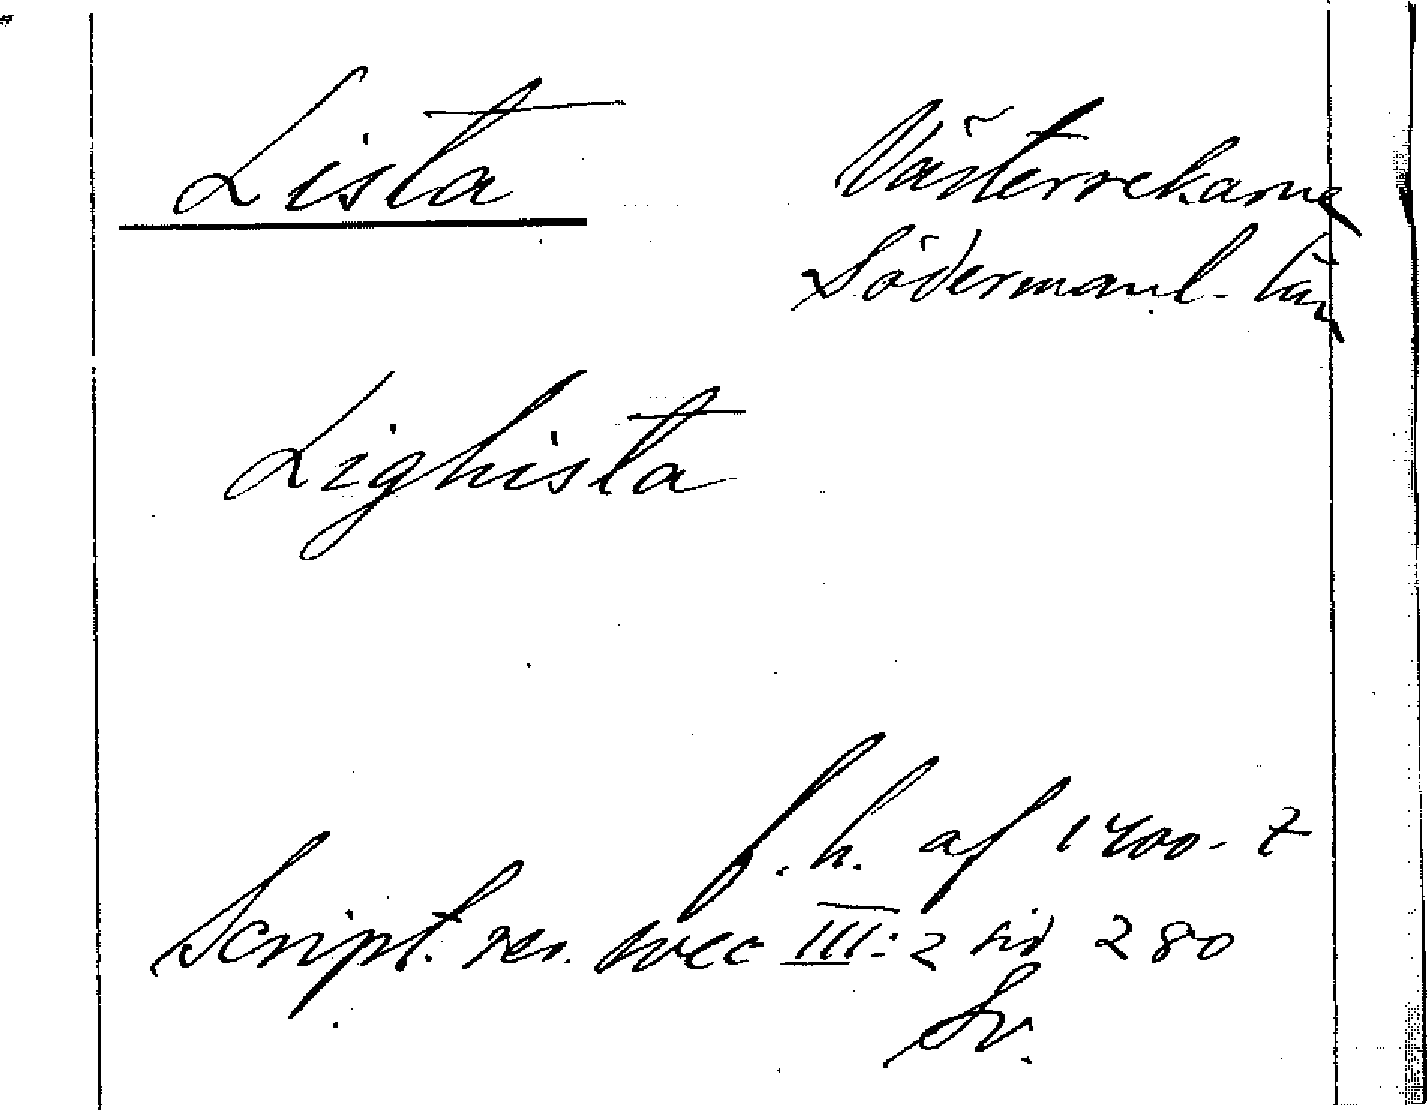 Lista
Västerrekarne
Södermanl. län
Lighista
f. h. af 1400-t
Script. rer. svec III:2 sid 280
Sv.